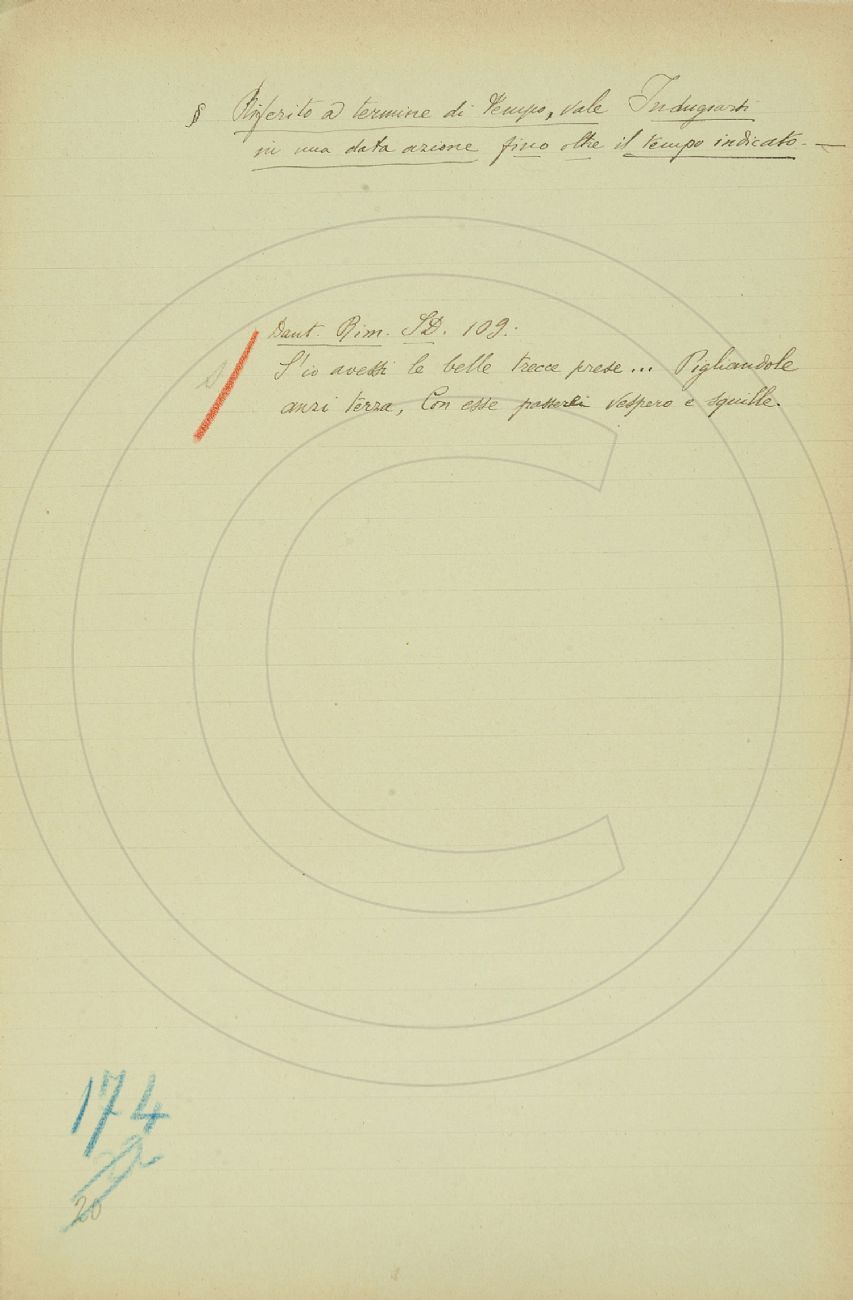 § Riferito a termine di tempo, vale Indugiarsi
in una data azione fino oltre il tempo indicato. —
Dant. Rim. SD. 109:
S'io avessi le belle trecce prese... Pigliandole
anzi terza, Con esse passerei vespero e squille.
174
20